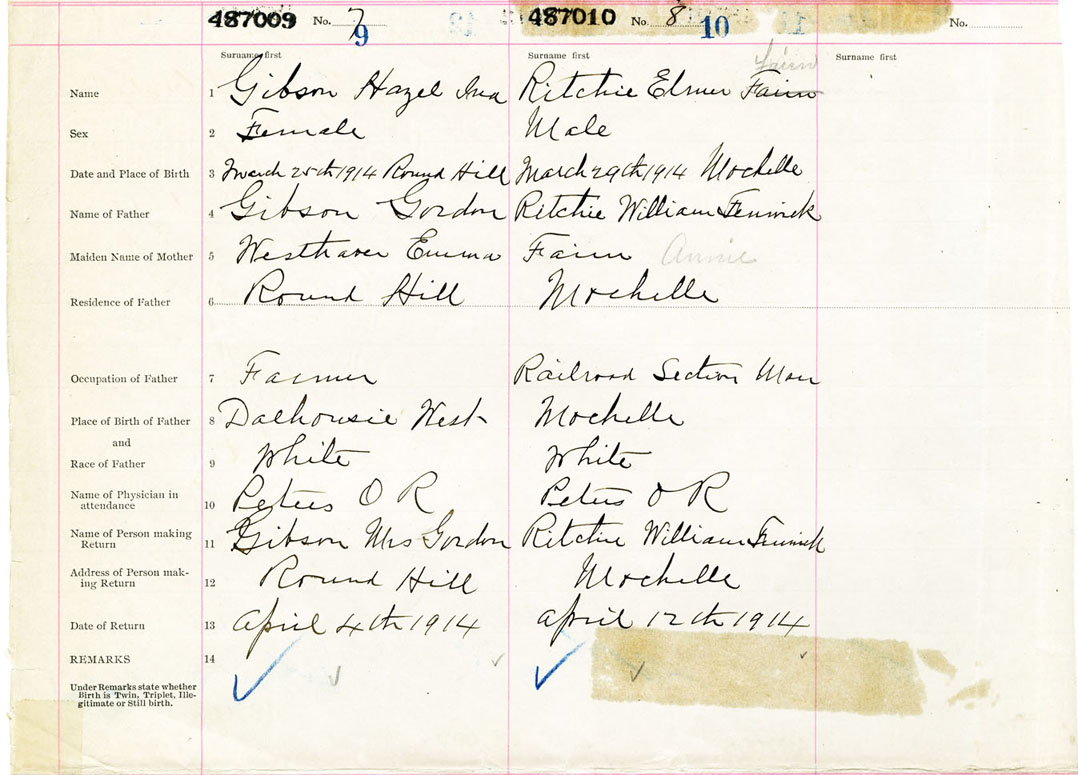 487009 No. 7 9 487010 No. 8 10 No.
Surname first Surname first Surname first
Name 1 Gibson Hazel Ina Ritchie Elmer Fairn
Sex 2 Female Male
Date and Place of Birth 3 March 25th 1914 Round Hill March 29th 1914 Mochelle
Name of Father 4 Gibson Gordon Ritchie William Fenwick
Maiden Name of Mother 5 Westhaver Emma Fairn Annie
Residence of Father 6 Round Hill Mochelle
Occupation of Father 7 Farmer Railroad Section Man
Place of Birth of Father 8 Dalhousie West Mochelle
and
Race of Father 9 White White
Name of Physician in
attendance 10 Peters O R Peters O R
Name of Person making
Return 11 Gibson Mrs Gordon Ritchie William Fenwick
Address of Person mak-
ing Return 12 Round Hill Mochelle
Date of Return 13 April 4th 1914 April 12th 1914
REMARKS 14
Under Remarks state whether
Birth is Twin, Triplet, Ille-
gitimate or Still birth.